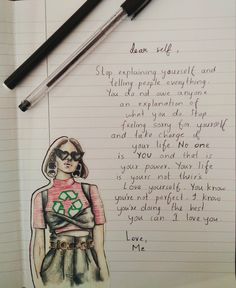 dear self,
Stop explaining yourself and
telling people everything.
You do not owe anyone
an explanation of
what you do. Stop
feeling sorry for yourself
and take charge of
your life. No one
is YOU and that is
your power. Your life
is yours not their's.
Love yourself. You know
you're not perfect. I know
you're doing the best
you can. I love you.
Love,
Me